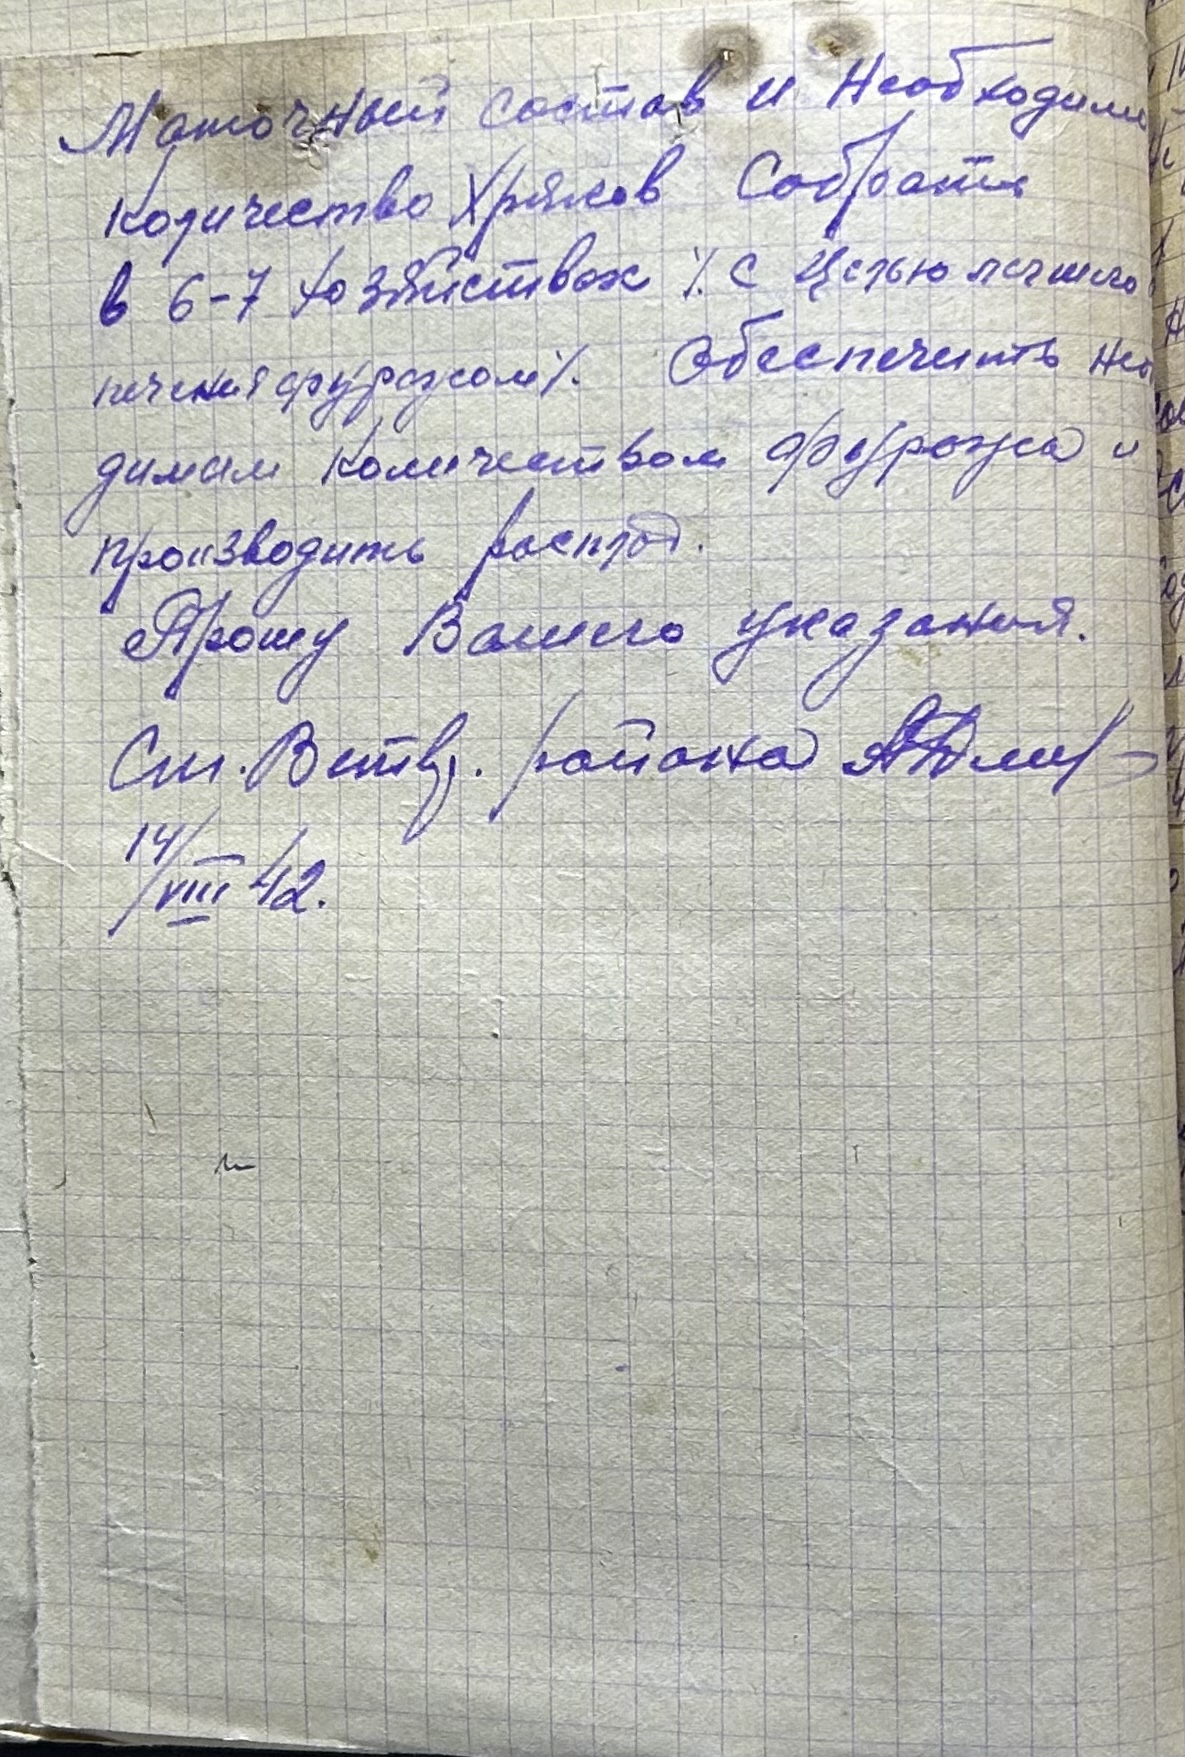 Маточный состав и необходимо
количество хряков собрать
в 6-7 хозяйствах /. с целью лучшего
печения фуражом /. Обеспечить нео
димым количеством фуража и
производить расплод.
Прошу Вашего указания.
Ст. Ветвр. района
14/VIII 42.